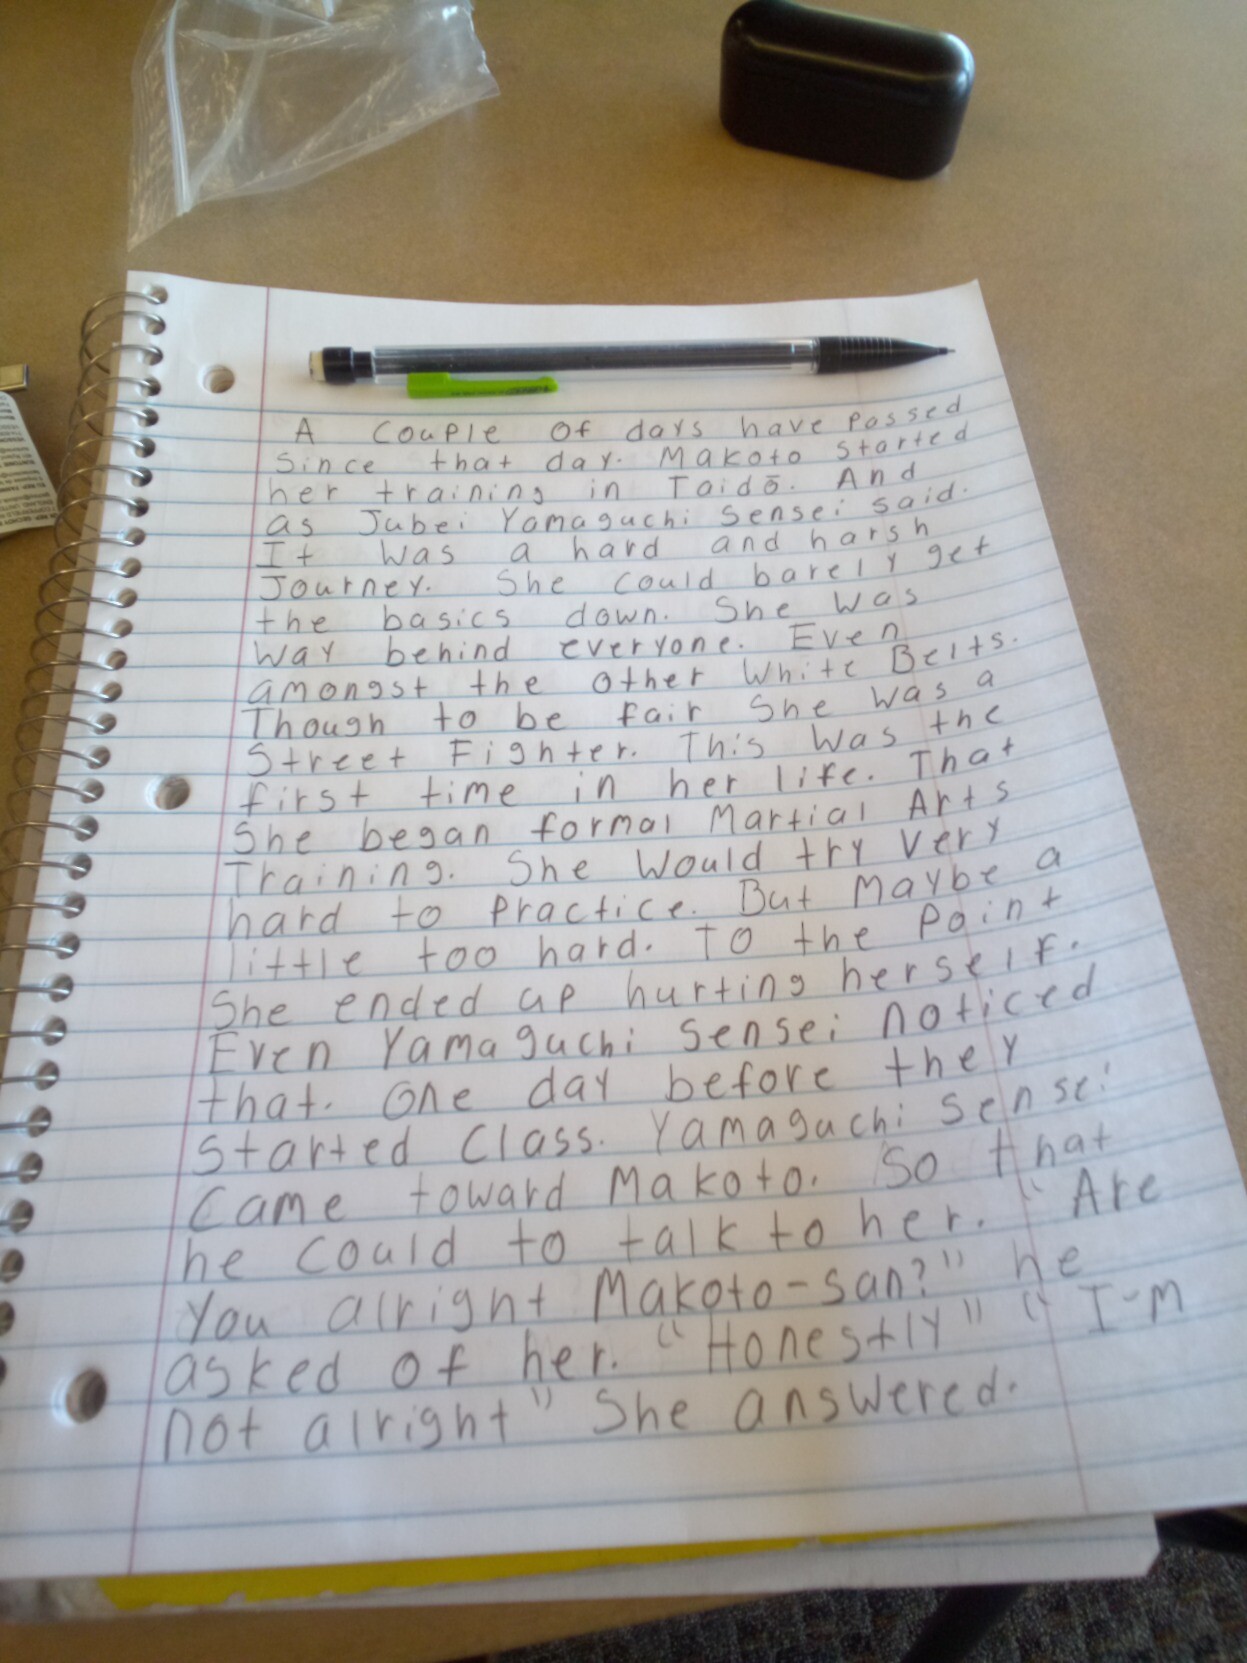 A couple of days have passed
since that day. Makoto started
her training in Taidō. And
as Jubei Yamaguchi Sensei said.
It was a hard and harsh
Journey. She could barely get
the basics down. She was
way behind everyone. Even
amongst the other White Belts.
Though to be fair She was a
Street Fighter. This was the
first time in her life. That
She began formal Martial Arts
Training. She would try very
hard to Practice. But Maybe a
little too hard. To the Point
She ended up hurting herself.
Even Yamaguchi Sensei noticed
that. One day before they
Started Class. Yamaguchi Sensei
Came toward Makoto. So that
he could to talk to her. "Are
You alright Makoto-san?" he
asked of her. "Honestly" "I-m
not alright" She answered.